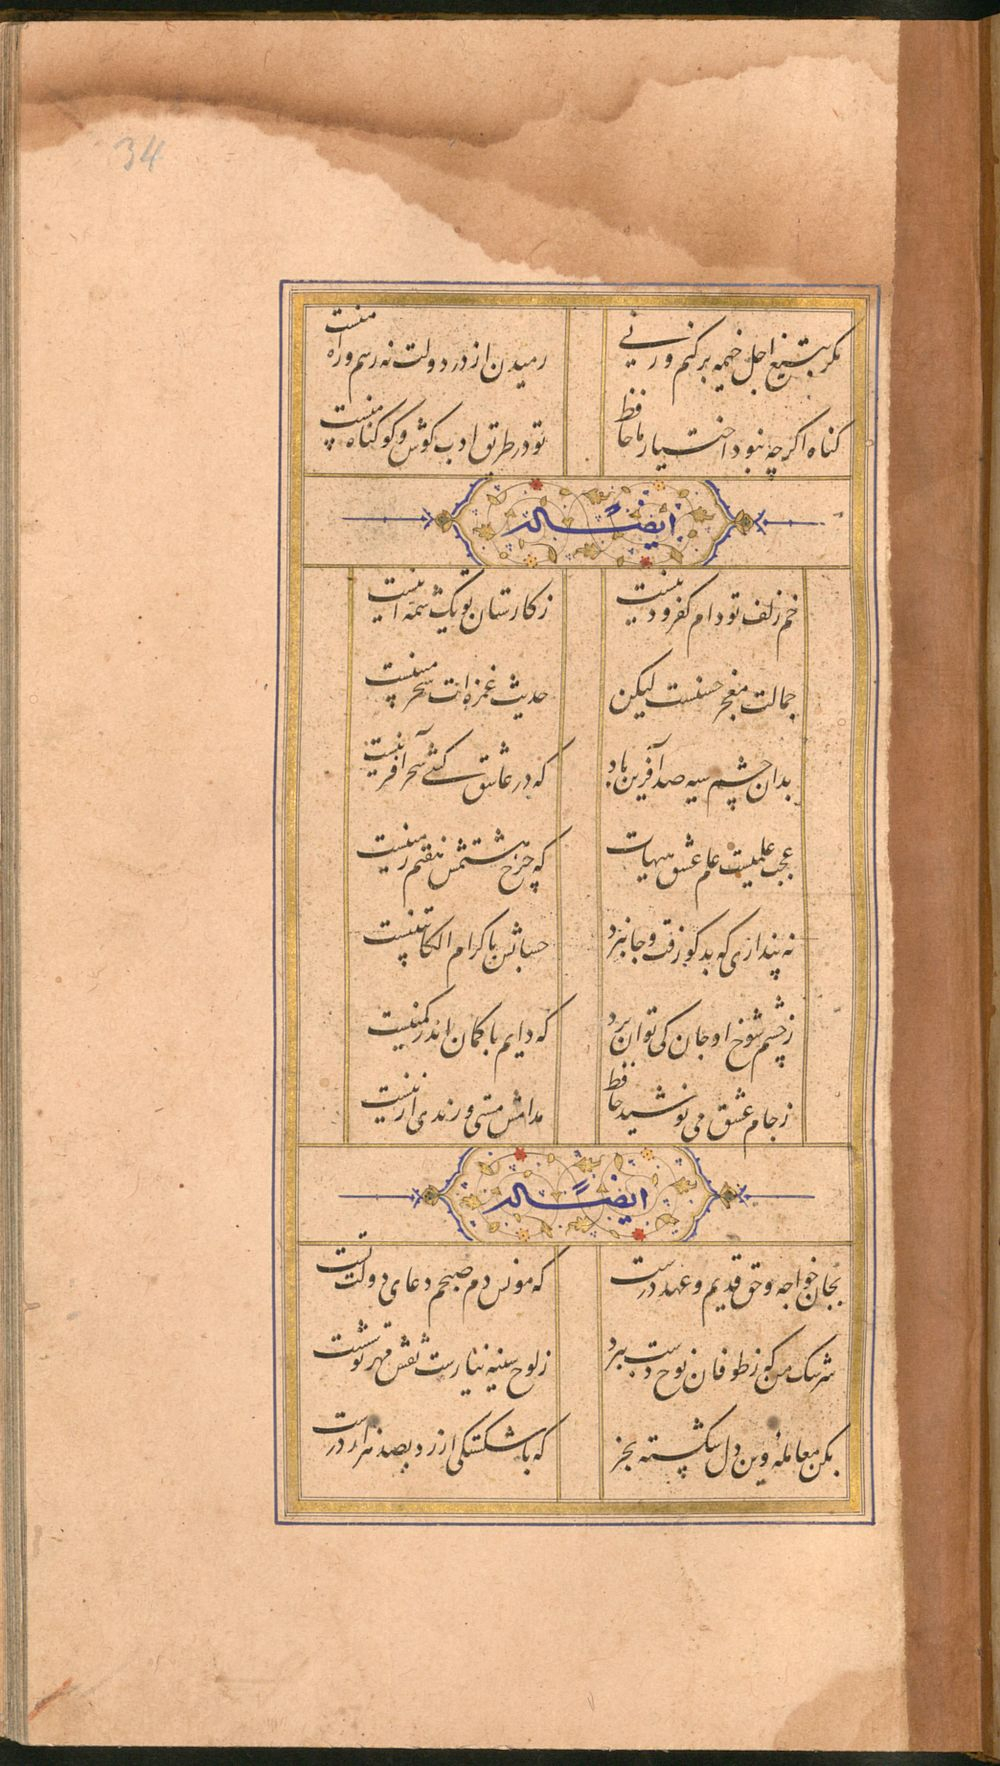 34
مکر بتیغ اجل خیمه برکنم ورنی
رمیدن از در دولت نه رسم و راه منست
کناه اکرچه نبود اختیار ما حافظ
تو در طریق ادب کوش و کو کناه منست
ایضاً له
خم زلف تو دام کفر و دینست
ز کارستان تو یک شمه اینست
جمالت معجز حسنست لیکن
حدیث غمزه ات سحر مبینست
بدان چشم سیه صد آفرین باد
که در عاشق کشی سحر آفرینست
عجب علمیست علم عشق هیهات
که چرخ هشتمش هفتم زمینست
نه پنداری که بدکو رفت و جان برد
حسابش با کرام الکاتبینست
ز چشم شوخ او جان کی توان برد
که دایم با کمان اندر کمینست
ز جام عشق می نوشید حافظ
مدامش مستی و رندی ازینست
ایضاً له
بجان خواجه و حق قدیم و عهد درست
که مونس دم صبحم دعای دولت تست
سرشک من که ز طوفان نوح دست ببرد
ز لوح سینه نیارست نقش مهر تو شست
بکن معامله وین دل شکسته بخر
که با شکستکی ارزد بصد هزار درست